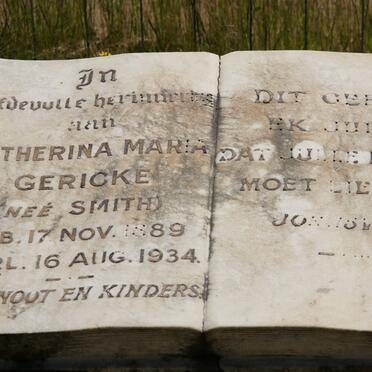 In
fdevolle herinnering
aan
THERINA MARIA
GERICKE
(NEÉ SMITH)
B. 17 NOV. 1889
RL. 16 AUG. 1934.
NOOT EN KINDERS.
DIT GEB
EK JUL
DAT JULLE
MOET LIE
JOH